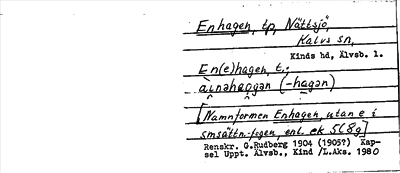 Enhagen, tp, Nättsjö,
Kalvs sn,
Kinds hd, Älvsb. l.
En(e)hagen, t.;
(-hagən)
[Namnformen Enhagen, utan e i
smsättn.-fogen, enl. ek 5689]
Renskr. G.Rudberg 1904 (1905?) Kap-
sel Uppt. Älvsb., Kind /L.Aks. 1980